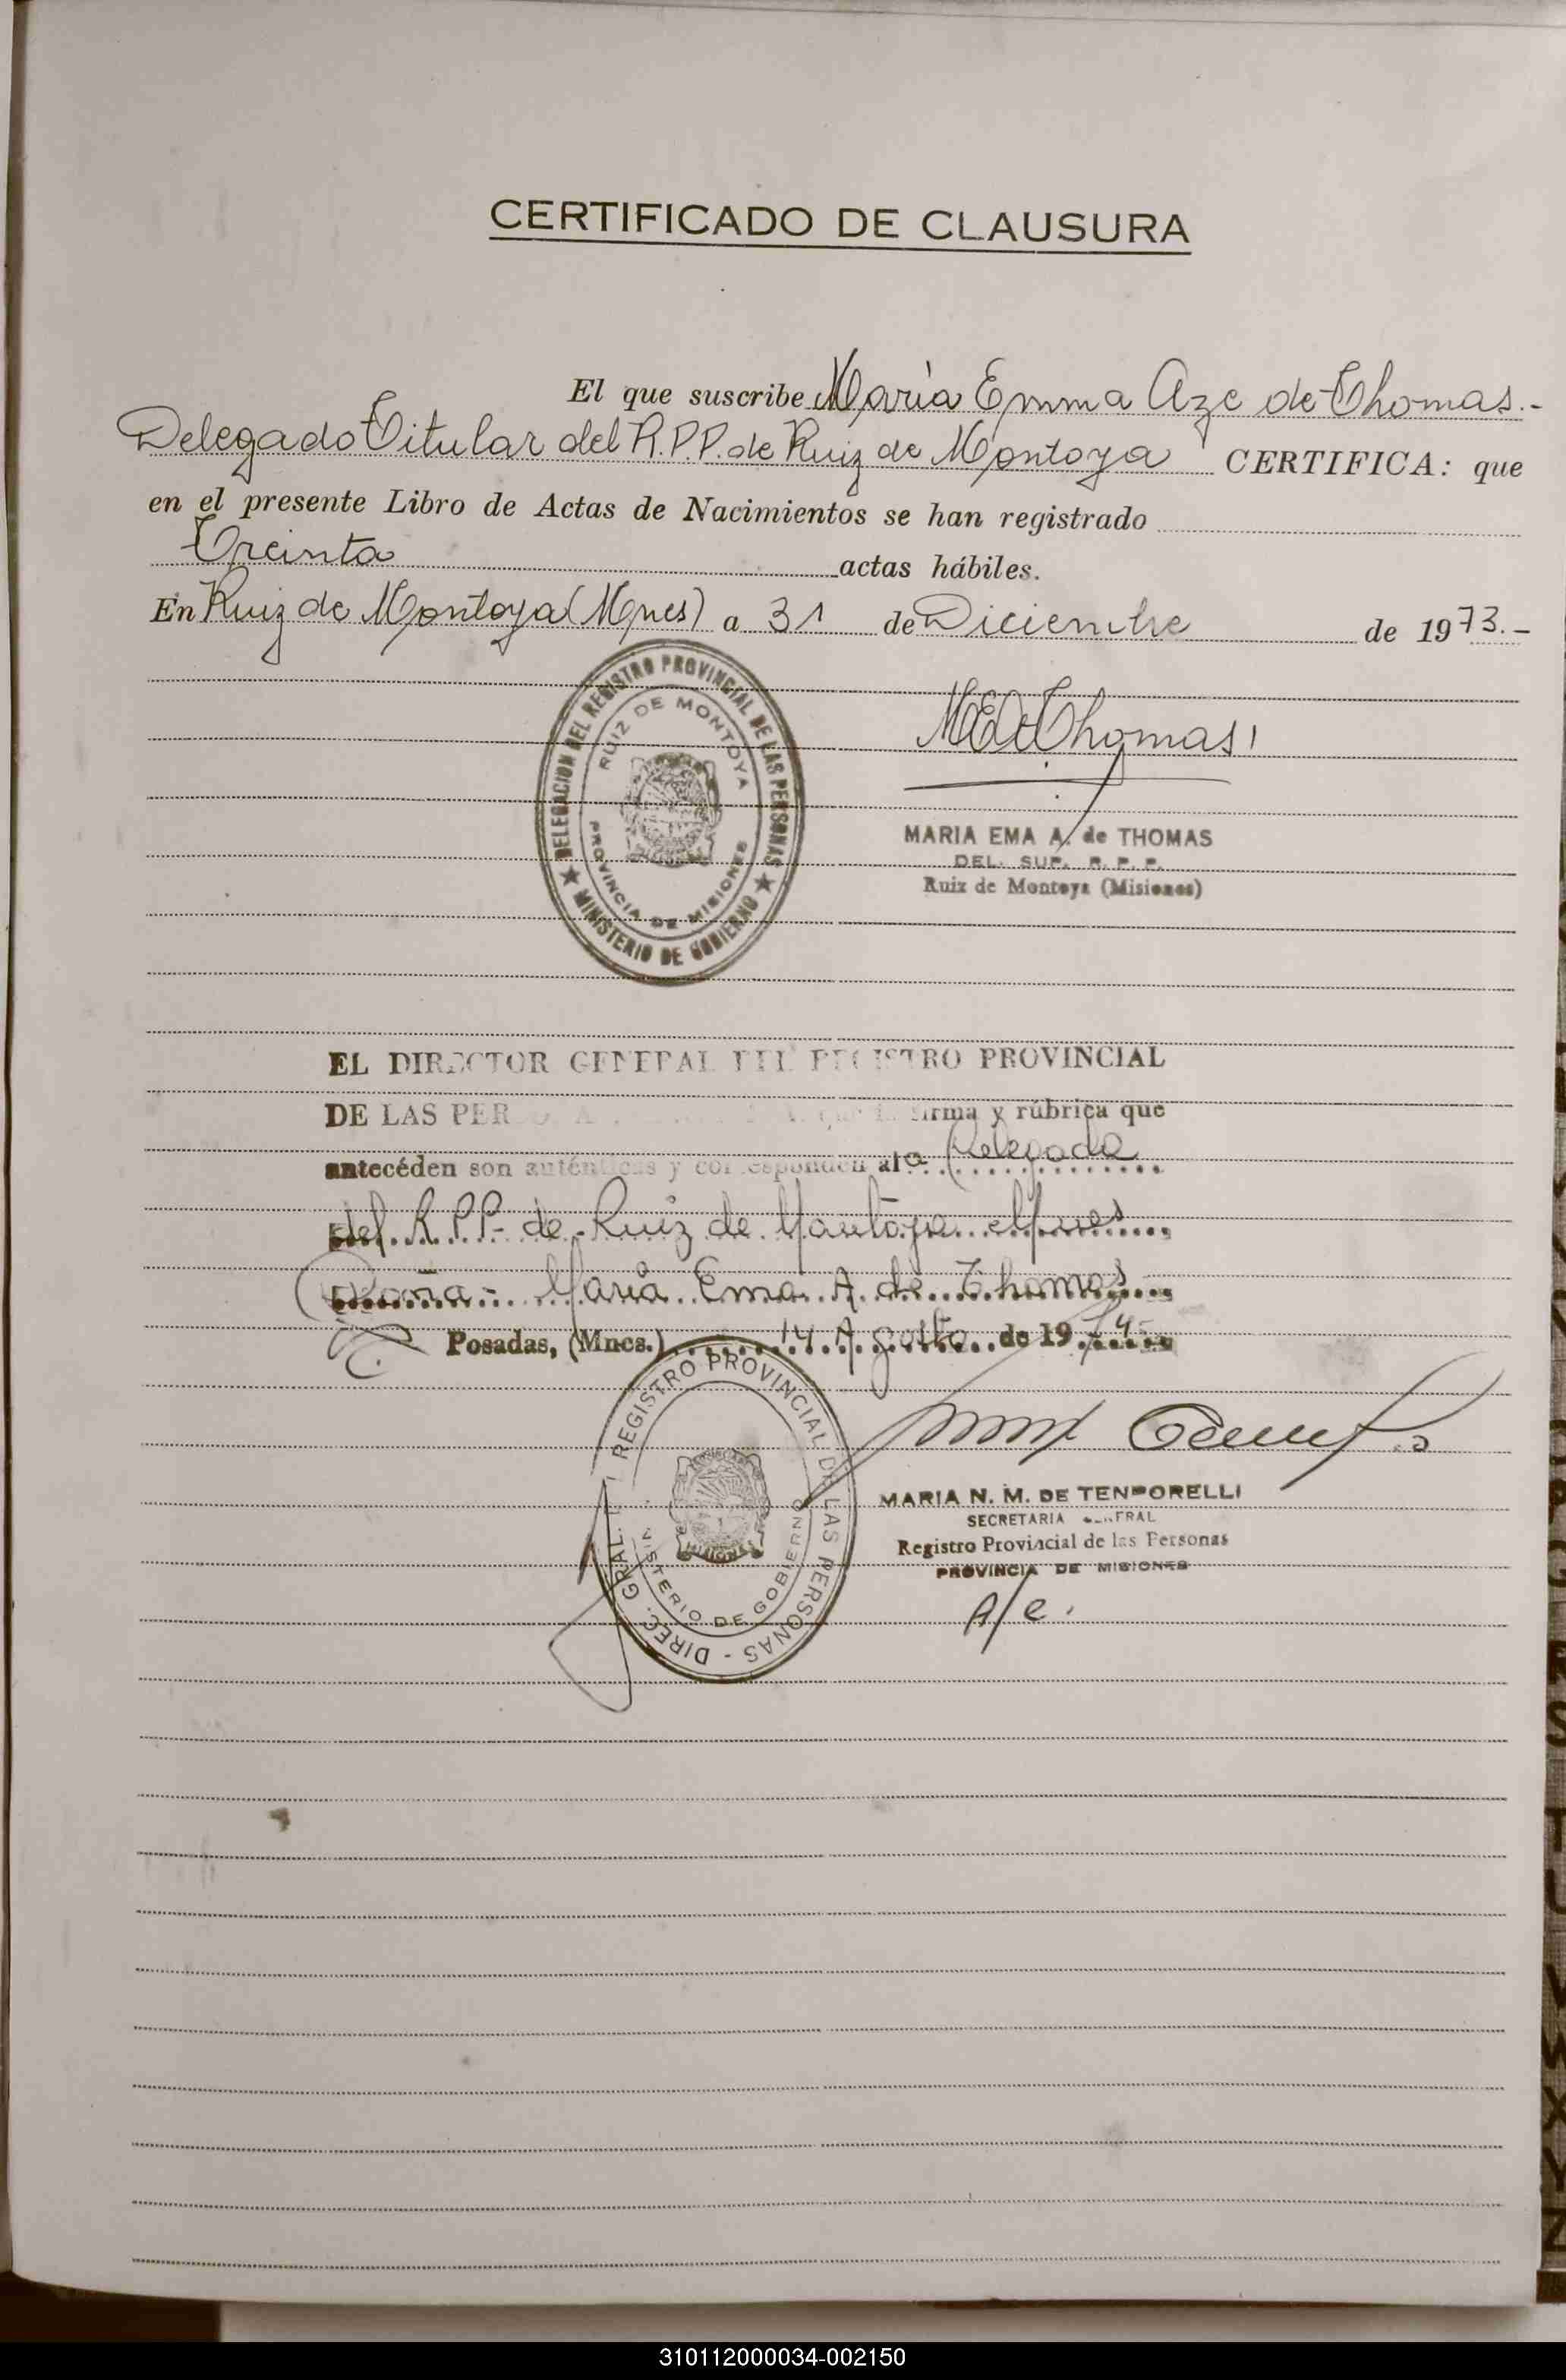 CERTIFICADO DE CLAUSURA
El que suscribe María Emma Aze de Thomas.-
Delegado Titular del R.P.P. de Ruiz de Montoya CERTIFICA: que
en el presente Libro de Actas de Nacimientos se han registrado
Treinta actas hábiles.
En Ruiz de Montoya (Mnes) a 31 de Diciembre de 1973.-
DELEGACION DEL REGISTRO PROVINCIAL DE LAS PERSONAS
RUIZ DE MONTOYA
PROVINCIA DE MISIONES
MINISTERIO DE GOBIERNO
Thomas
MARIA EMA A. de THOMAS
DEL. SUP. R. P. P.
Ruiz de Montoya (Misiones)
EL DIRECTOR GENERAL DEL REGISTRO PROVINCIAL
DE LAS PER firma y rúbrica que
antecéden son auténticas y corresponden al a Delegada
del R.P.P.- de Ruiz de Montoya Mnes
Doña - María Ema A. de Thomas
Posadas, (Mnes.) 14 Agosto de 1974-
REGISTRO PROVINCIAL DE LAS PERSONAS - DIREC. GRAL.
MINISTERIO DE GOBIERNO
MARIA N. M. DE TEMPORELLI
SECRETARIA GENERAL
Registro Provincial de las Personas
PROVINCIA DE MISIONES
A/c.
310112000034-002150